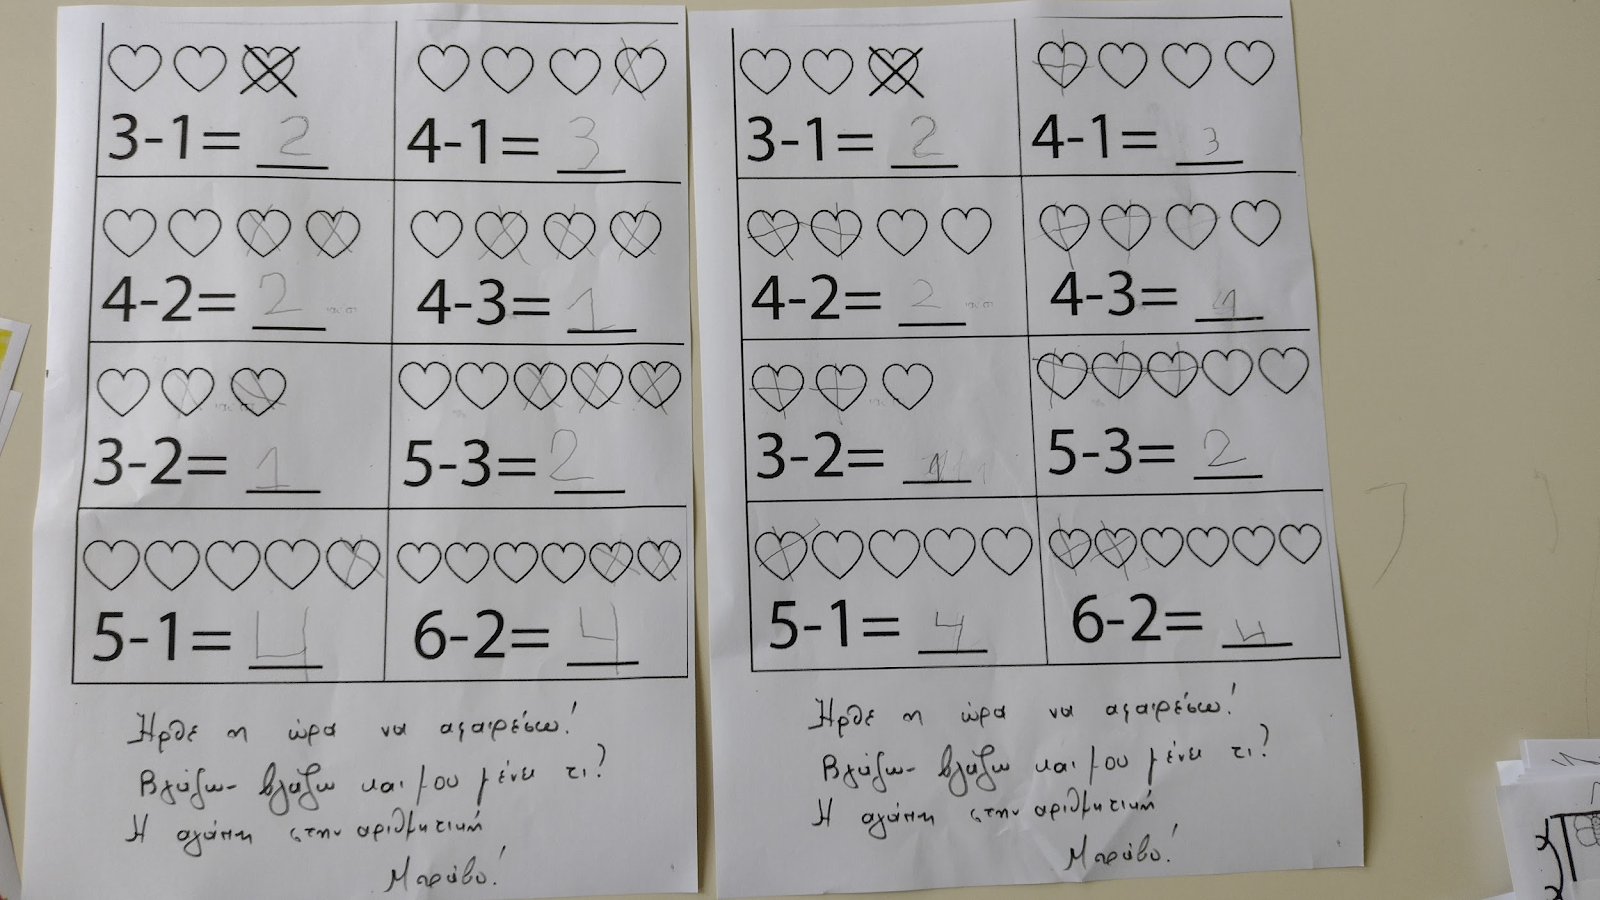 3-1= 2
4-1= 3
4-2= 2
4-3= 1
3-2= 1
5-3= 2
5-1= 4
6-2= 4
Ήρθε η ώρα να αφαιρέσω!
Βγάζω- βγάζω και μου μένει τι?
Η αγάπη στην αριθμητική
Μπράβο!
3-1= 2
4-1= 3
4-2= 2
4-3= 1
3-2= 1
5-3= 2
5-1= 4
6-2= 4
Ήρθε η ώρα να αφαιρέσω!
Βγάζω- βγάζω και μου μένει τι?
Η αγάπη στην αριθμητική
Μπράβο!